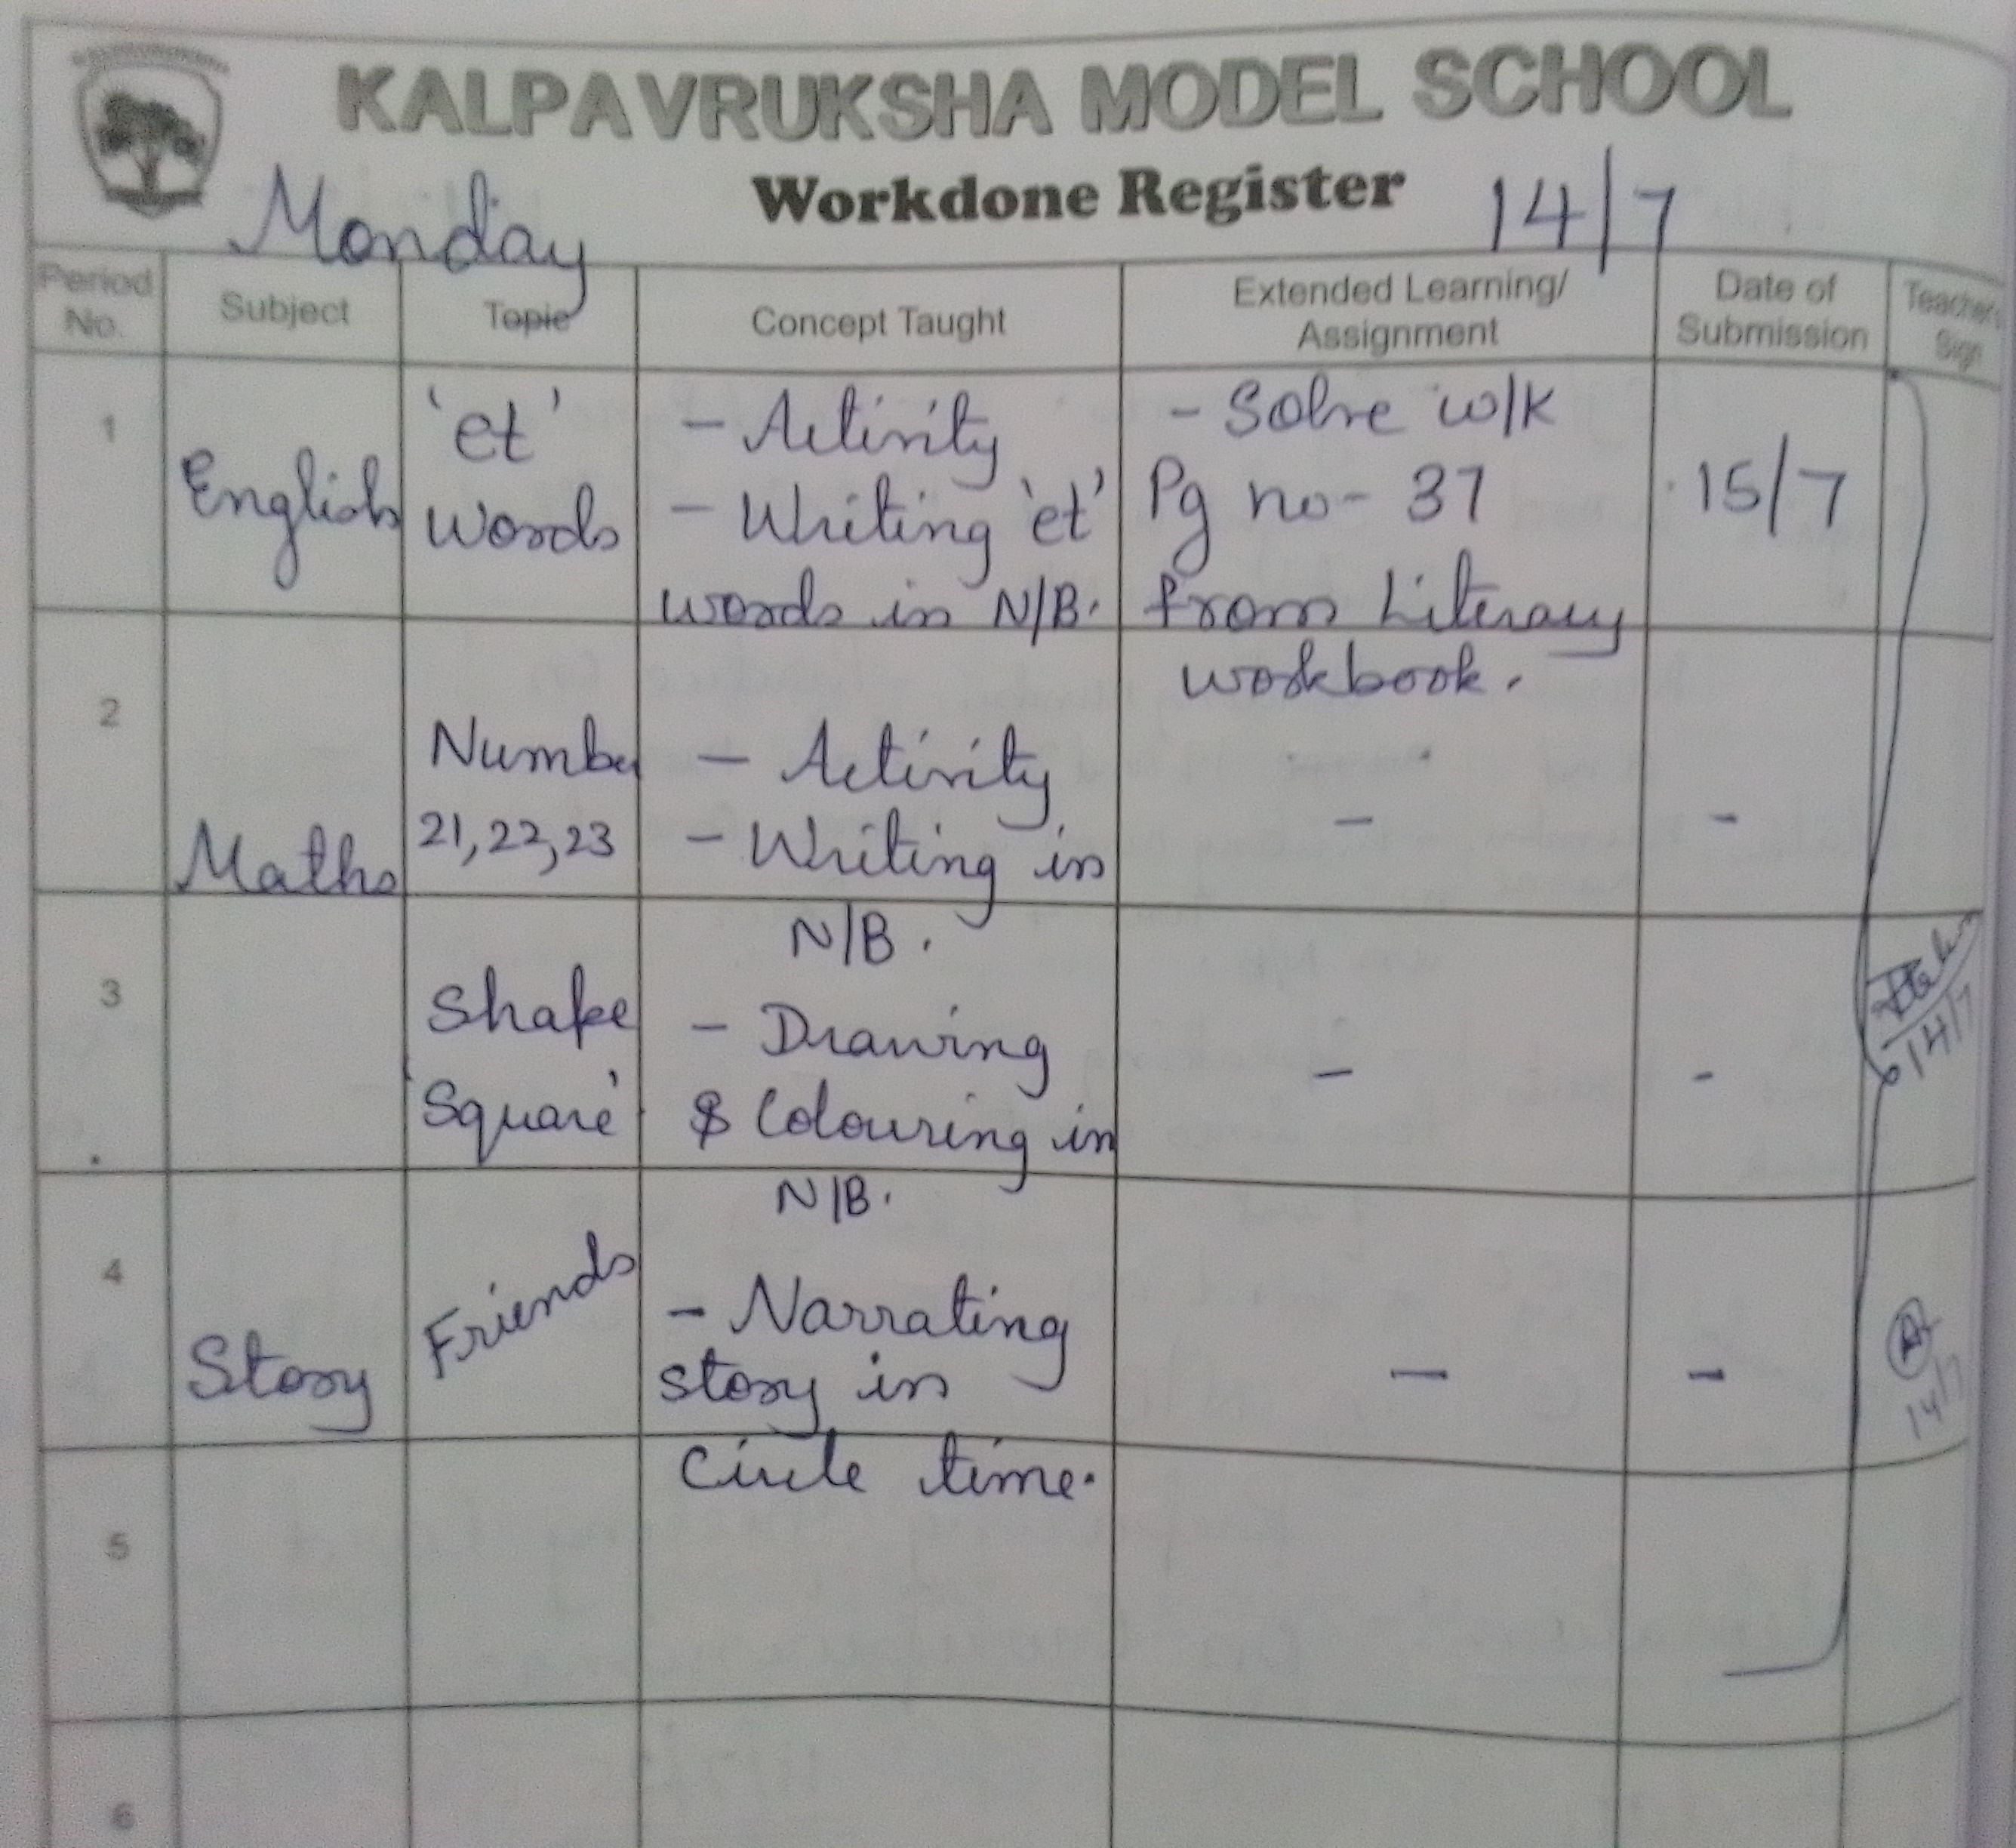 KALPAVRUKSHA MODEL SCHOOL
Workdone Register
Monday
14/7
Period No.
Subject
Topic
Concept Taught
Extended Learning/
Assignment
Date of
Submission
Teachers
Sign
1
English
'et'
words
- Activity
- Writing 'et'
words in N/B.
- Solve w/k
Pg no- 37
from Literacy
workbook.
15/7
2
Maths
Number
21, 22, 23
- Activity
- Writing in
N/B.
-
-
3
Shape
'Square'
- Drawing
& Colouring in
N/B.
-
-
14/7
4
Story
Friends
- Narrating
story in
Circle time.
-
-
14/7
5
6